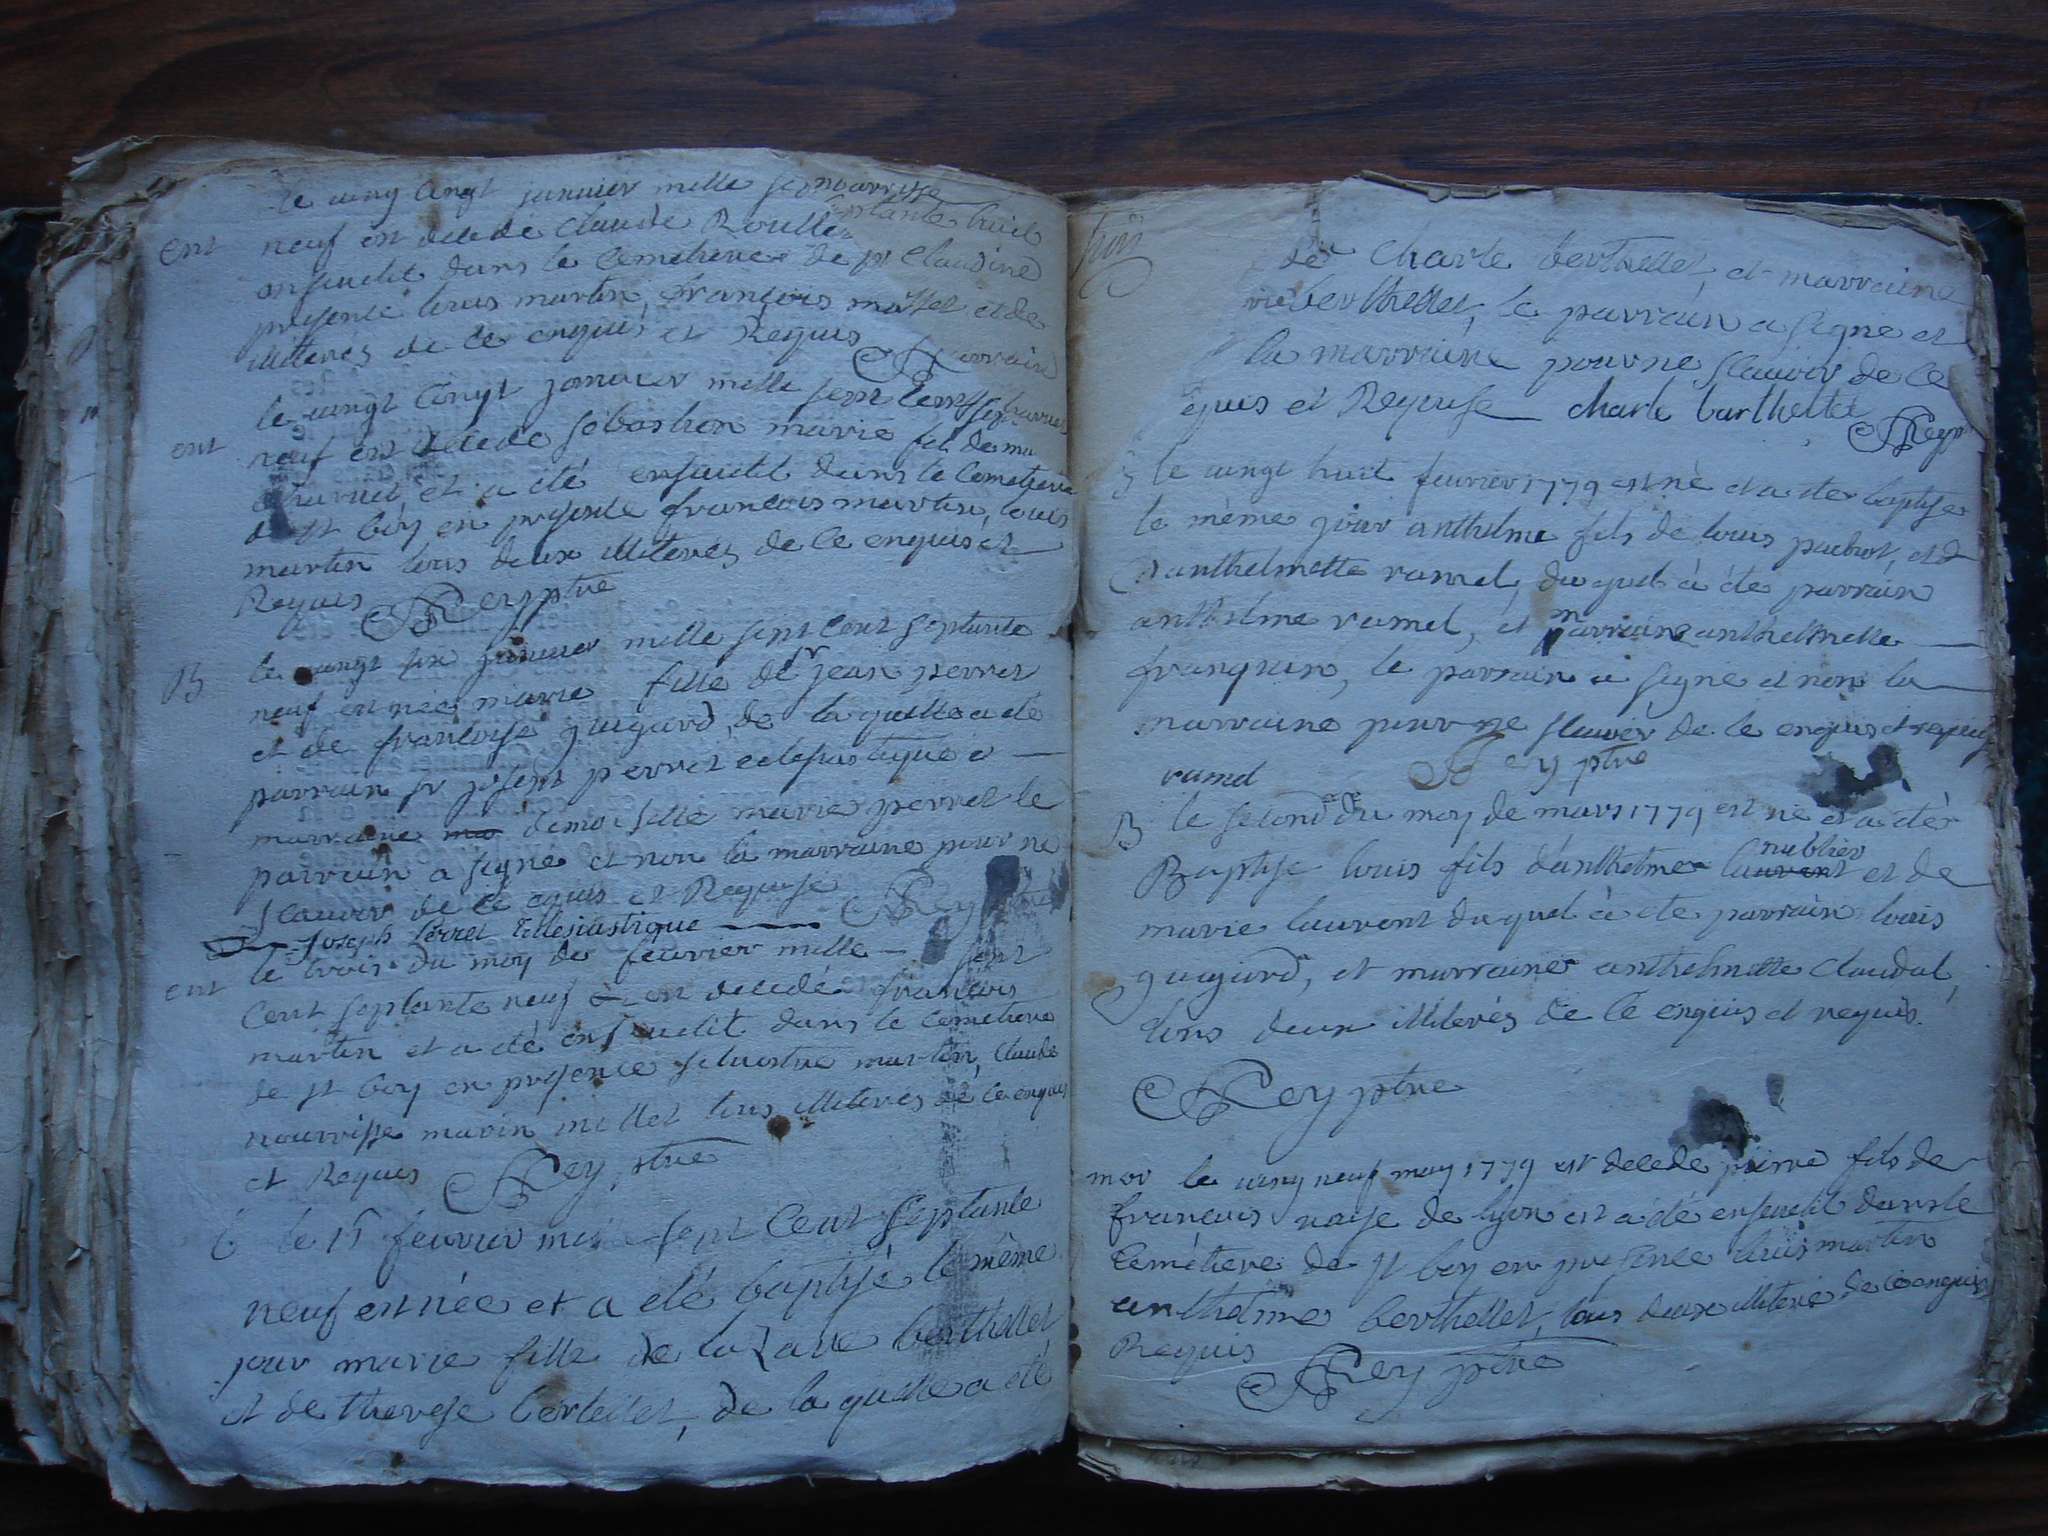 le vingt cinqt janvier mille sep nourrisse
ent neuf est decede Claude Roulle eptante huit
enseuelit dans le Cemetiere de st Claudine
presence louis martin, françois mollet et de
illiteres de ce enquis et Requis parrain
le vingt cinqt janvier mille sept Cent septante
ent neuf est decede sebastien marie fils de
et a été enseuelit dans le Cemetiere
de st boy en presence francois martin, louis
martin tous deux illiteres de ce enquis et
Requis Rey ptre
B le vingt six janvier mille sept Cent septante
neuf est née marie fille de sr jean perret
et de françoise guigard, de la quelle a été
parrain sr joseph perret eclesiastique et
marraine demoiselle marie perret le
parrain a signe et non la marraine pour ne
scauoir de ce equis et Requise Rey
Joseph Perret Ecclesiastique
ent le trois du moy de feuvrier mille sept
Cent septante neuf est decedé francois
martin et a été enseuelit dans le Cemetiere
de st boy en presence siluestre martin, Claude
nourrisse marin mollet tous illiteres de ce enquis
et Requis Rey ptre
B le 15 feuvrier mille sept Cent septante
neuf est née et a été baptisé le même
jour marie fille de lazare berthellet
et de therese berthellet, de la quelle a été
de Charle berthellet, et marraine
berthellet, le parrain a signe et
la marraine pour ne scauoir de ce
equis et Requise charle barthellet Rey
B le vingt huit feuvrier 1779 est né et a ete baptise
le même jour anthelme fils de louis pubrot, et d
anthelmette ramel, du quel à éte parrain
anthelme ramel, et marraine anthelmette
franquin, le parrain a signe et non la
marraine pour ne scauoir de ce enquis et requis
ramel Rey ptre
B le second du moy de mars 1779 est né et a été
nublier
Baptise louis fils d'anthelme laurent et de
marie laurent du quel à éte parrain louis
guigard, et marraine anthelmette Claudal,
tous deux illiterés de ce enquis et requis.
Rey ptre
mor le vingt neuf may 1779 est decede pierre fils de
francois naise de lyon et a été enseuelit dans le
Cemétiere de st boy en presence louis martin
anthelme berthellet, tous deux illiteré de ce enquis
Requis Rey ptre